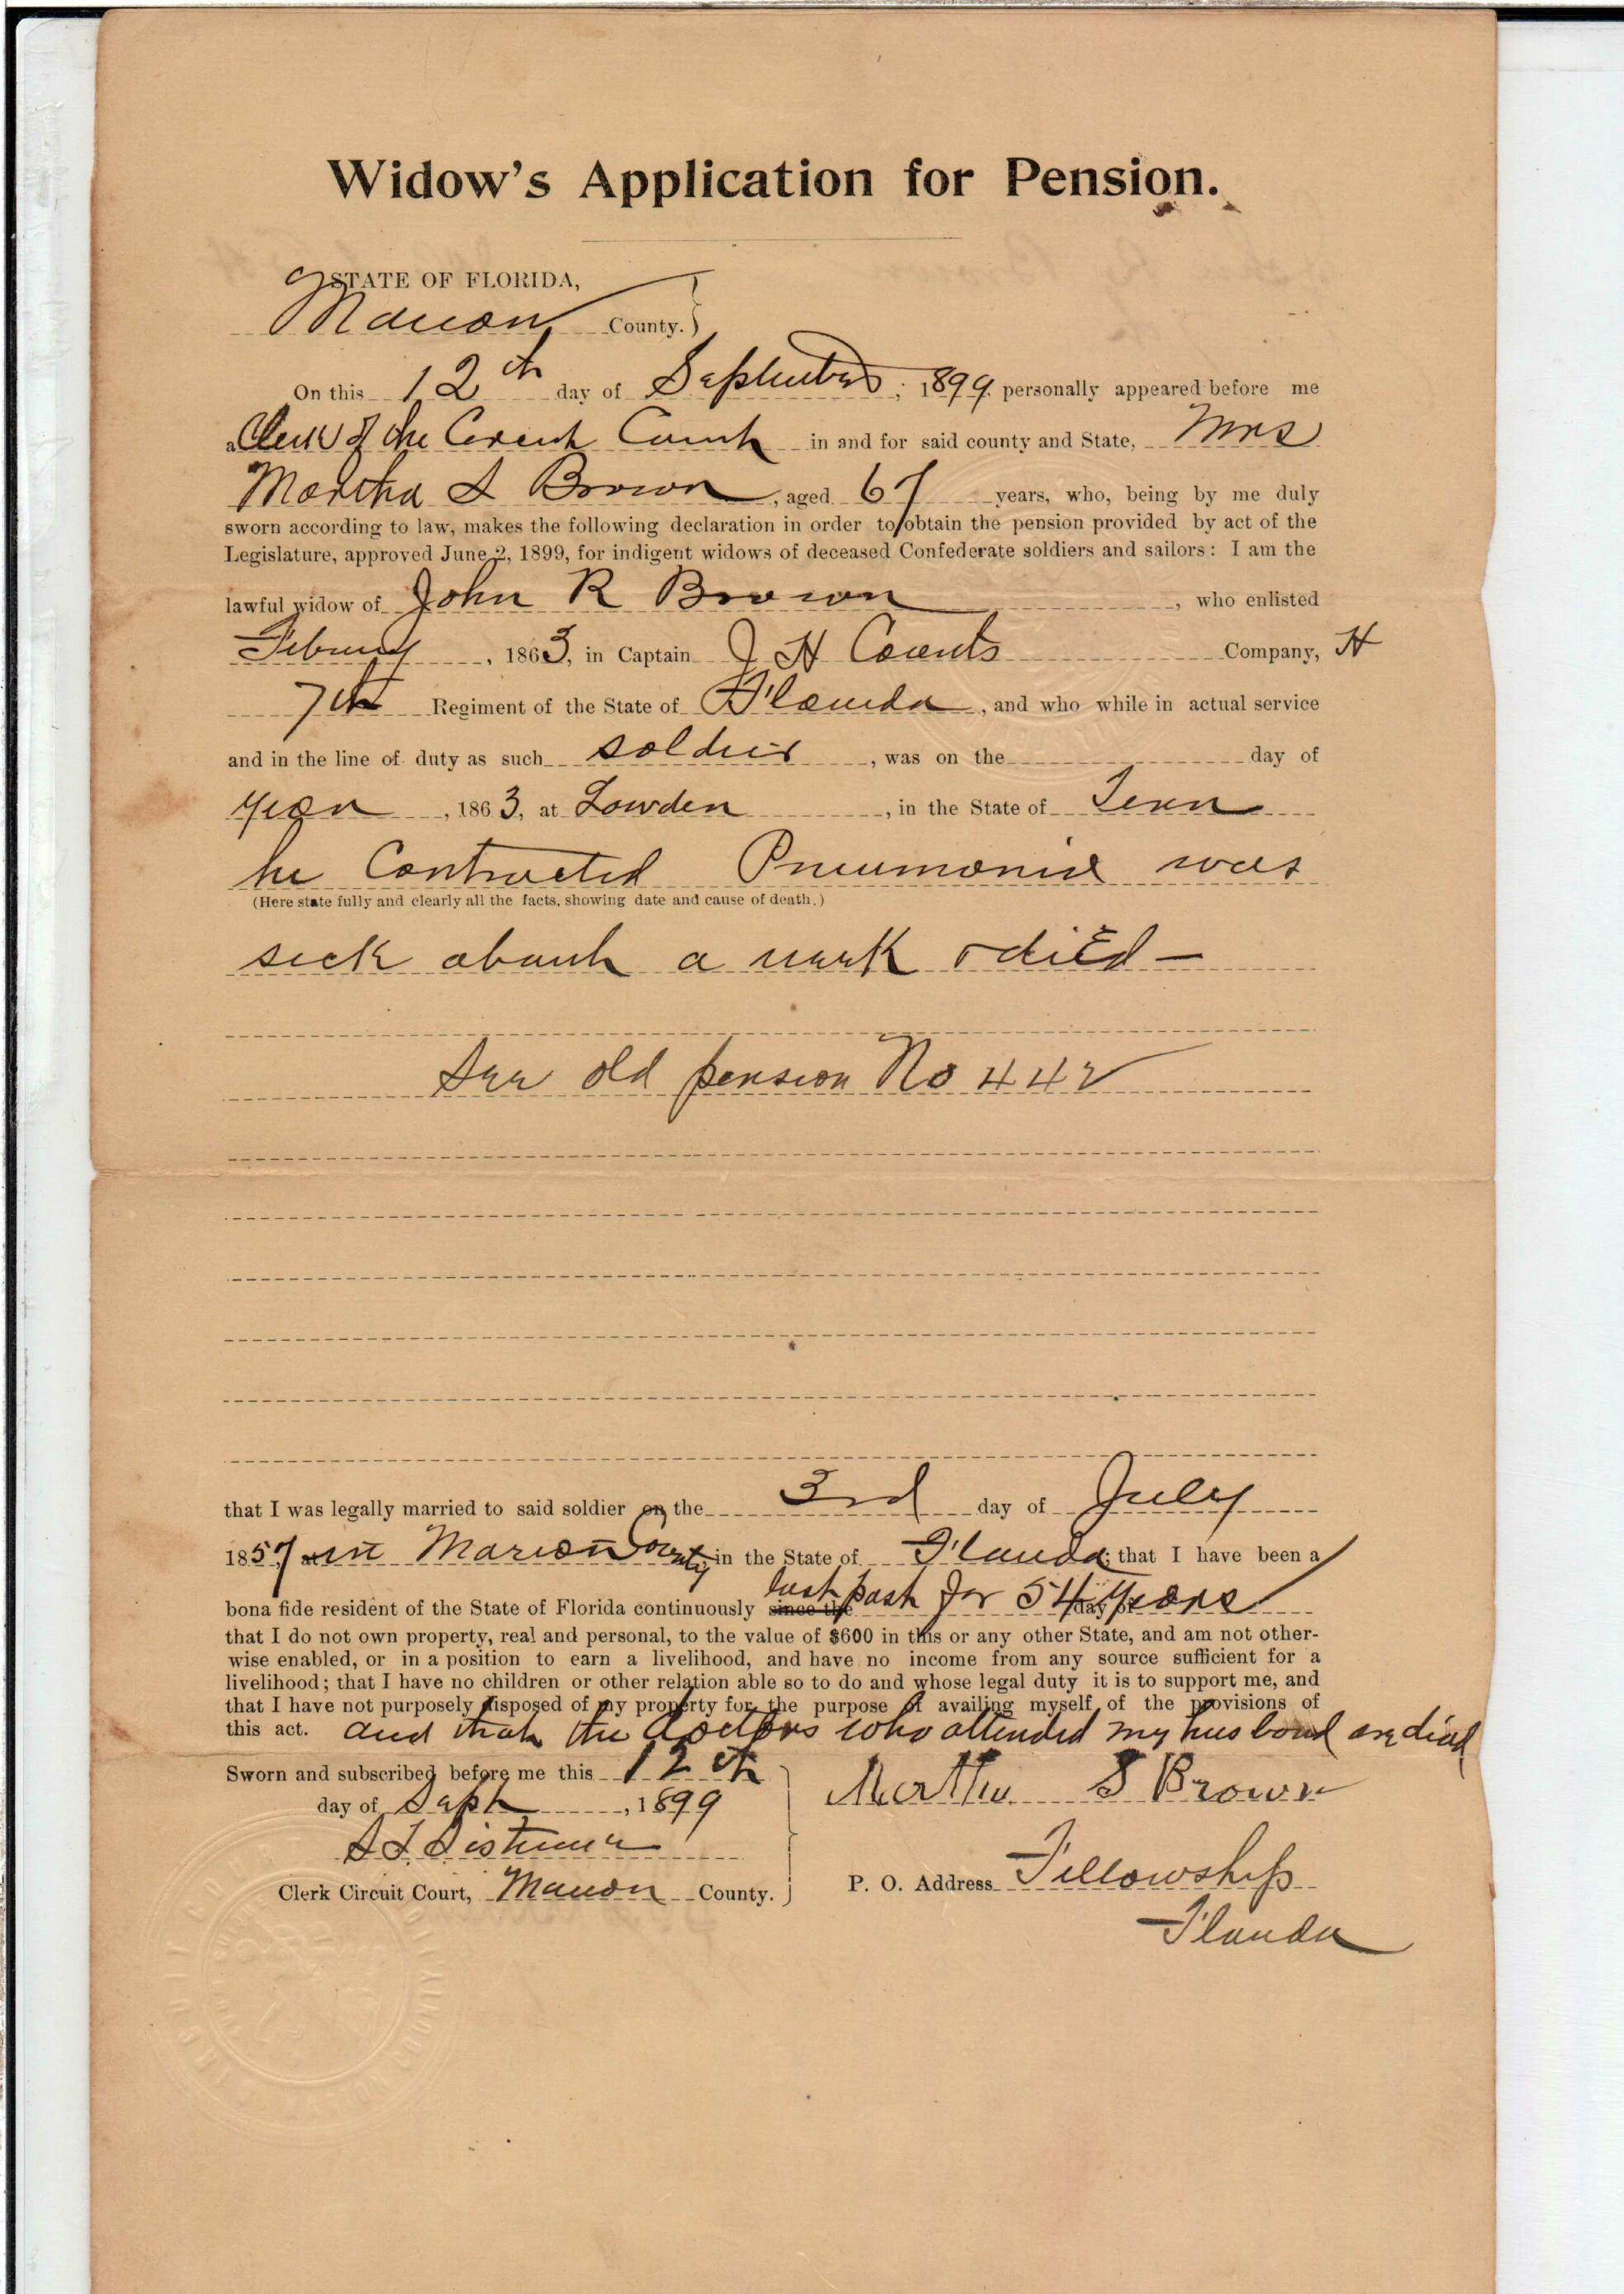 Widow's Application for Pension.
STATE OF FLORIDA,
Marion County.
On this 12th day of September, 1899 personally appeared before me
a Clerk of the Circuit Court in and for said county and State, Mrs
Martha S Brown, aged 67 years, who, being by me duly
sworn according to law, makes the following declaration in order to obtain the pension provided by act of the
Legislature, approved June 2, 1899, for indigent widows of deceased Confederate soldiers and sailors: I am the
lawful widow of John R Brown, who enlisted
Februay, 1863, in Captain J H Counts Company, H
7th Regiment of the State of Florida, and who while in actual service
and in the line of duty as such soldier, was on the day of
year, 1863, at Lowden, in the State of Tenn
he Contracted Pneumonia was
(Here state fully and clearly all the facts, showing date and cause of death.)
sick about a week & died —
See old pension No 442
that I was legally married to said soldier on the 3rd day of July
1857, at in Marion County in the State of Florida; that I have been a
bona fide resident of the State of Florida continuously since the last past for 54 day of years
that I do not own property, real and personal, to the value of $600 in this or any other State, and am not other-
wise enabled, or in a position to earn a livelihood, and have no income from any source sufficient for a
livelihood; that I have no children or other relation able so to do and whose legal duty it is to support me, and
that I have not purposely disposed of my property for the purpose of availing myself of the provisions of
this act. and that the doctors who attended my husband are dead
Sworn and subscribed before me this 12th
day of Sept, 1899
Martha S Brown
S T Sistrunk
Clerk Circuit Court, Marion County.
P. O. Address Fellowship
Florida